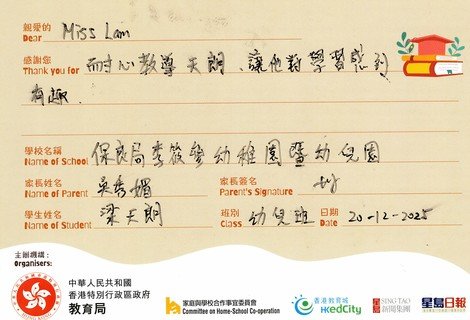 親愛的
Dear Miss Lam
感謝您
Thank you for 耐心教導天朗、讓他對學習感到
有趣.
學校名稱
Name of School 保良局李筱參幼稚園暨幼兒園
家長姓名 家長簽名
Name of Parent 吳秀媚 Parent's Signature
學生姓名 班別 日期
Name of Student 梁天朗 Class 幼兒班 Date 20-12-2025
主辦機構:
Organisers:
中華人民共和國
香港特別行政區政府
教育局
家庭與學校合作事宜委員會
Committee on Home-School Co-operation
香港教育城
HKedCity
SING TAO
新聞集團
星島日報